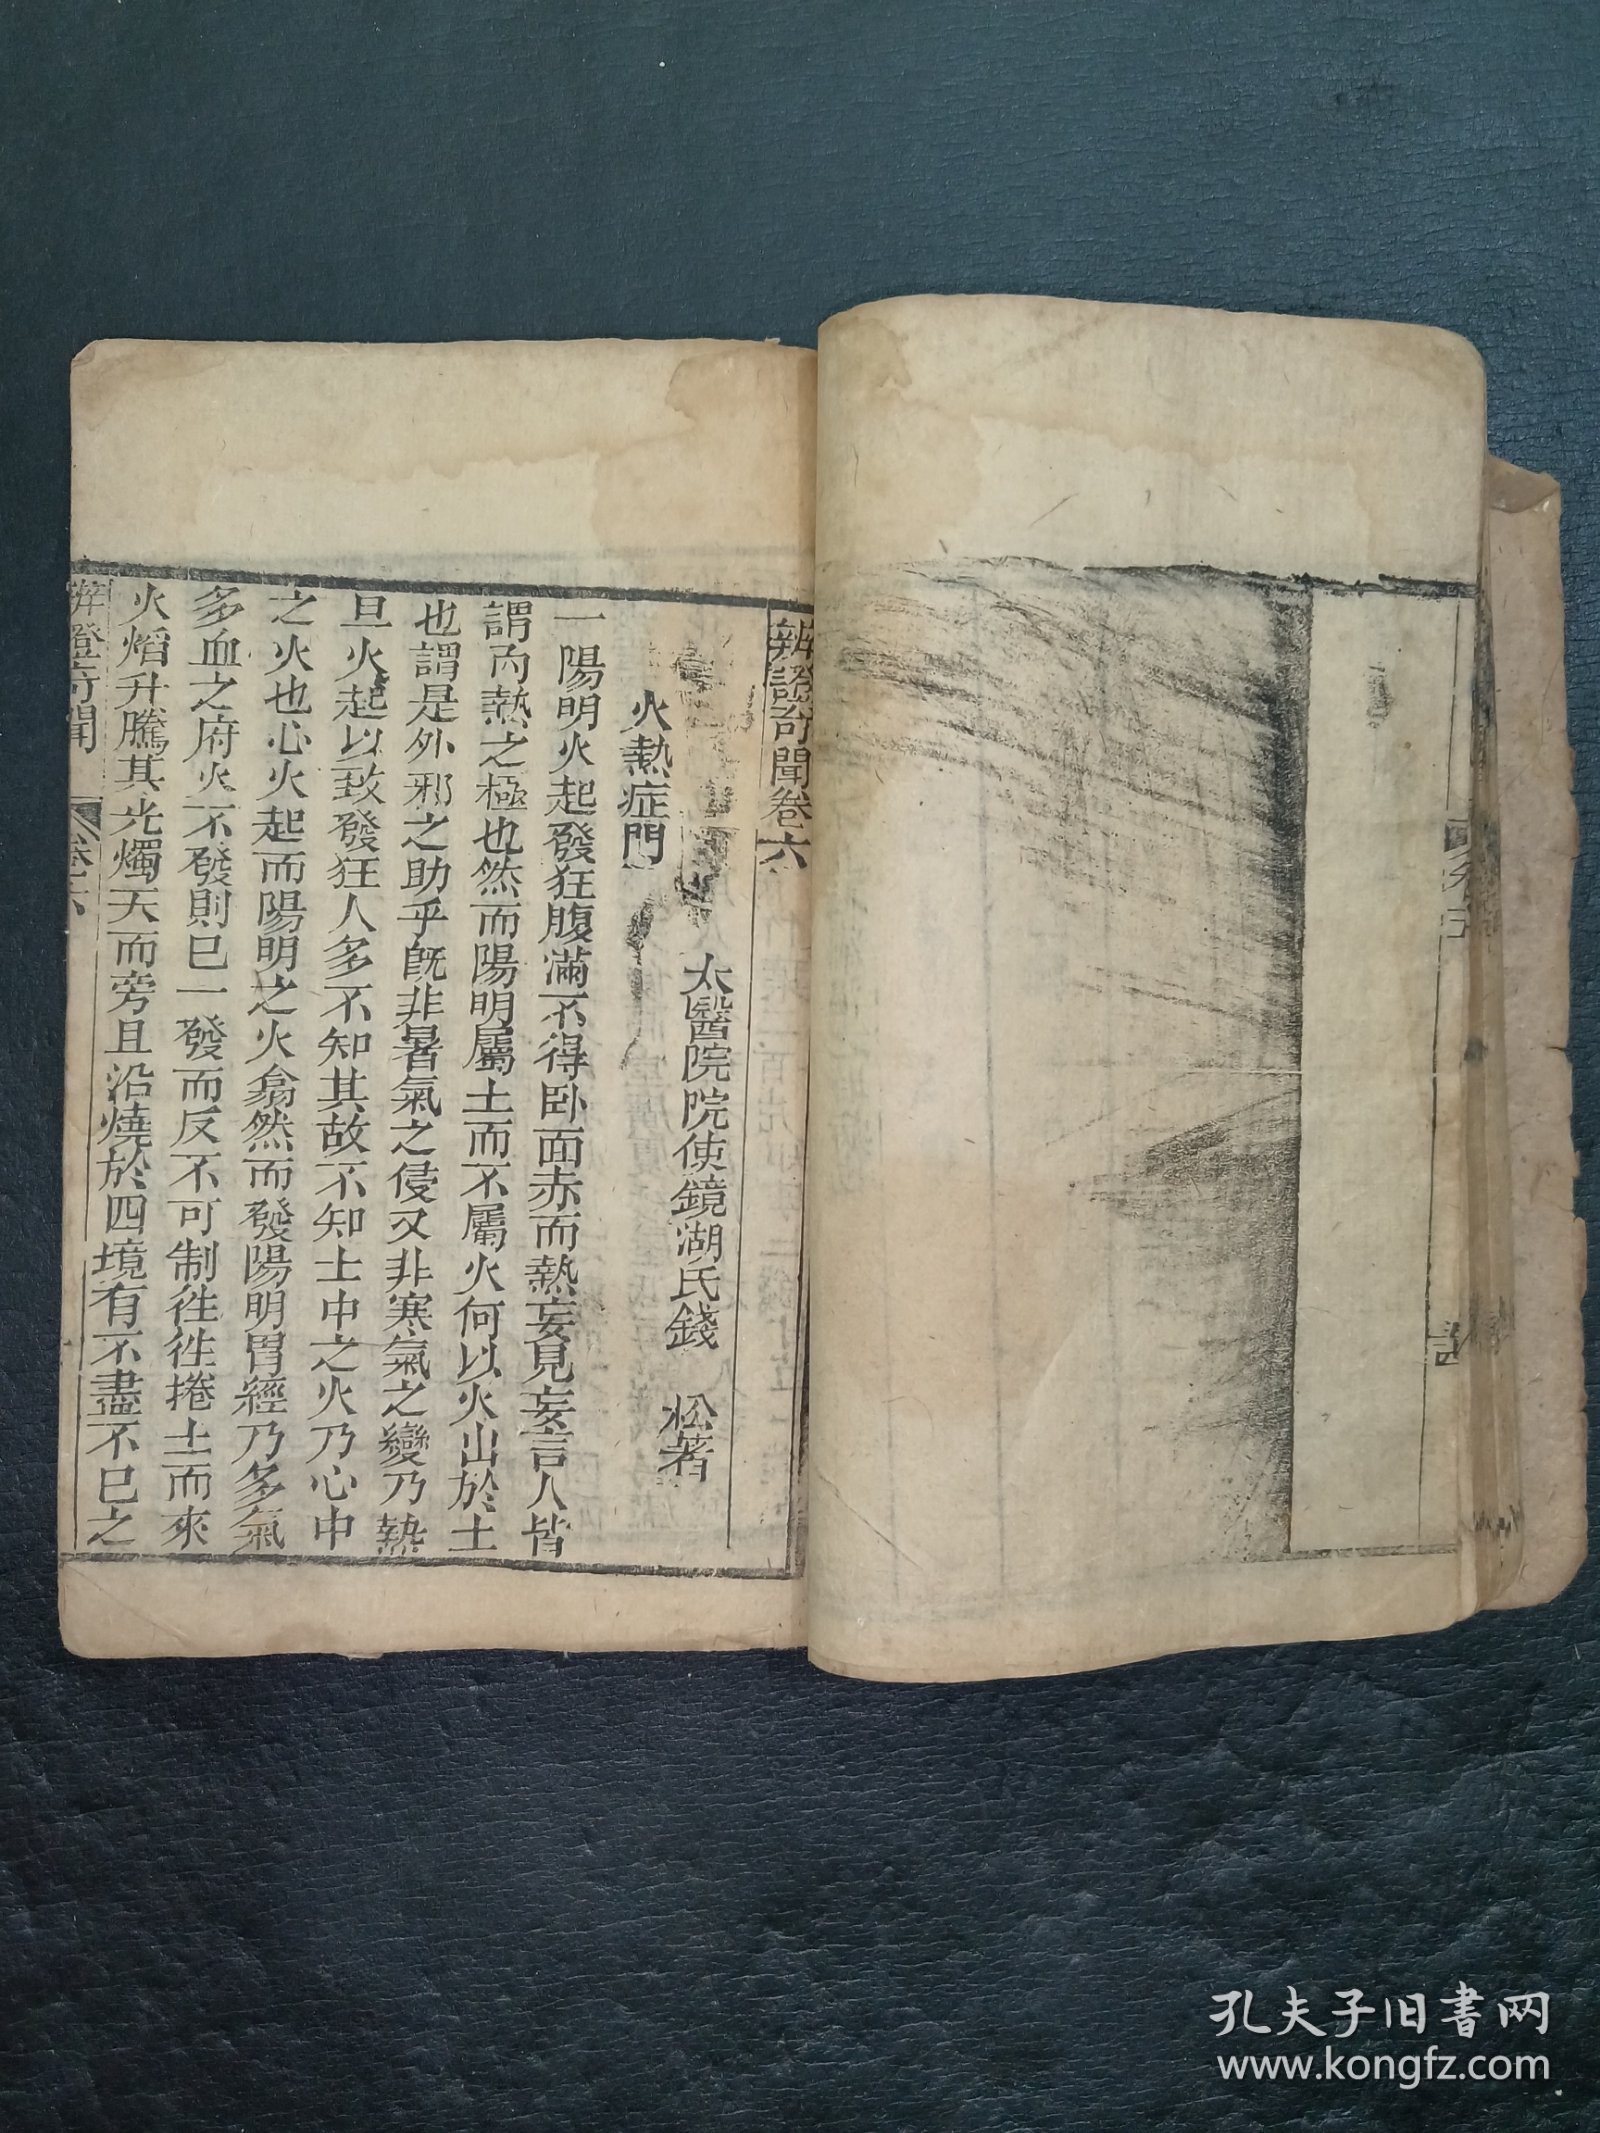 辨證奇聞卷六
太醫院院使鏡湖氏錢 松著
火熱症門
一陽明火起發狂腹滿不得卧面赤而熱妄見妄言人皆
謂内熱之極也然而陽明屬土而不屬火何以火出於土
也謂是外邪之助乎旣非暑氣之侵又非寒氣之變乃熱
旦火起以致發狂人多不知其故不知土中之火乃心中
之火也心火起而陽明之火翕然而發陽明胃經乃多氣
多血之府火不發則已一發而反不可制徃徃捲土而來
火熖升騰其光燭天而旁且沿燒於四境有不盡不已之
辨證奇聞 卷六
孔夫子旧书网
www.kongfz.com